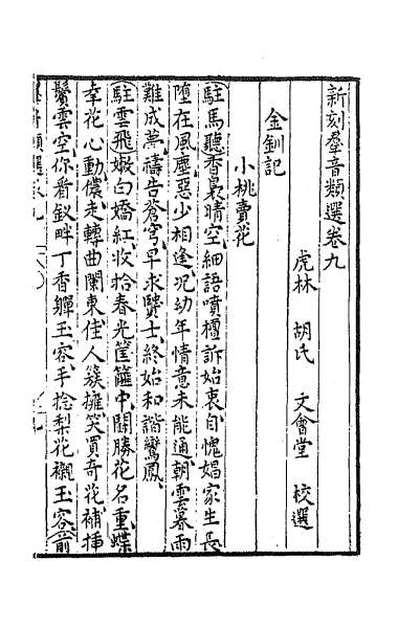 新刻羣音類選卷九
虎林 胡氏 文會堂 校選
金釧記
小桃賣花
駐馬聽香裊晴空細語噴檀訴始衷自愧娼家生長
墮在風塵惡少相逢况幼年情意未能通朝雲暮雨
難成萬禱告蒼穹早求賢士終始和諧鸞鳳
駐雲飛嫩白嬌紅收拾春光筐籮中鬬勝花名重蝶
奉花心動儂走轉曲闌東佳人簇擁笑買奇花補揷
鬢雲空你看釵畔丁香嚲玉容手捻梨花襯玉容前